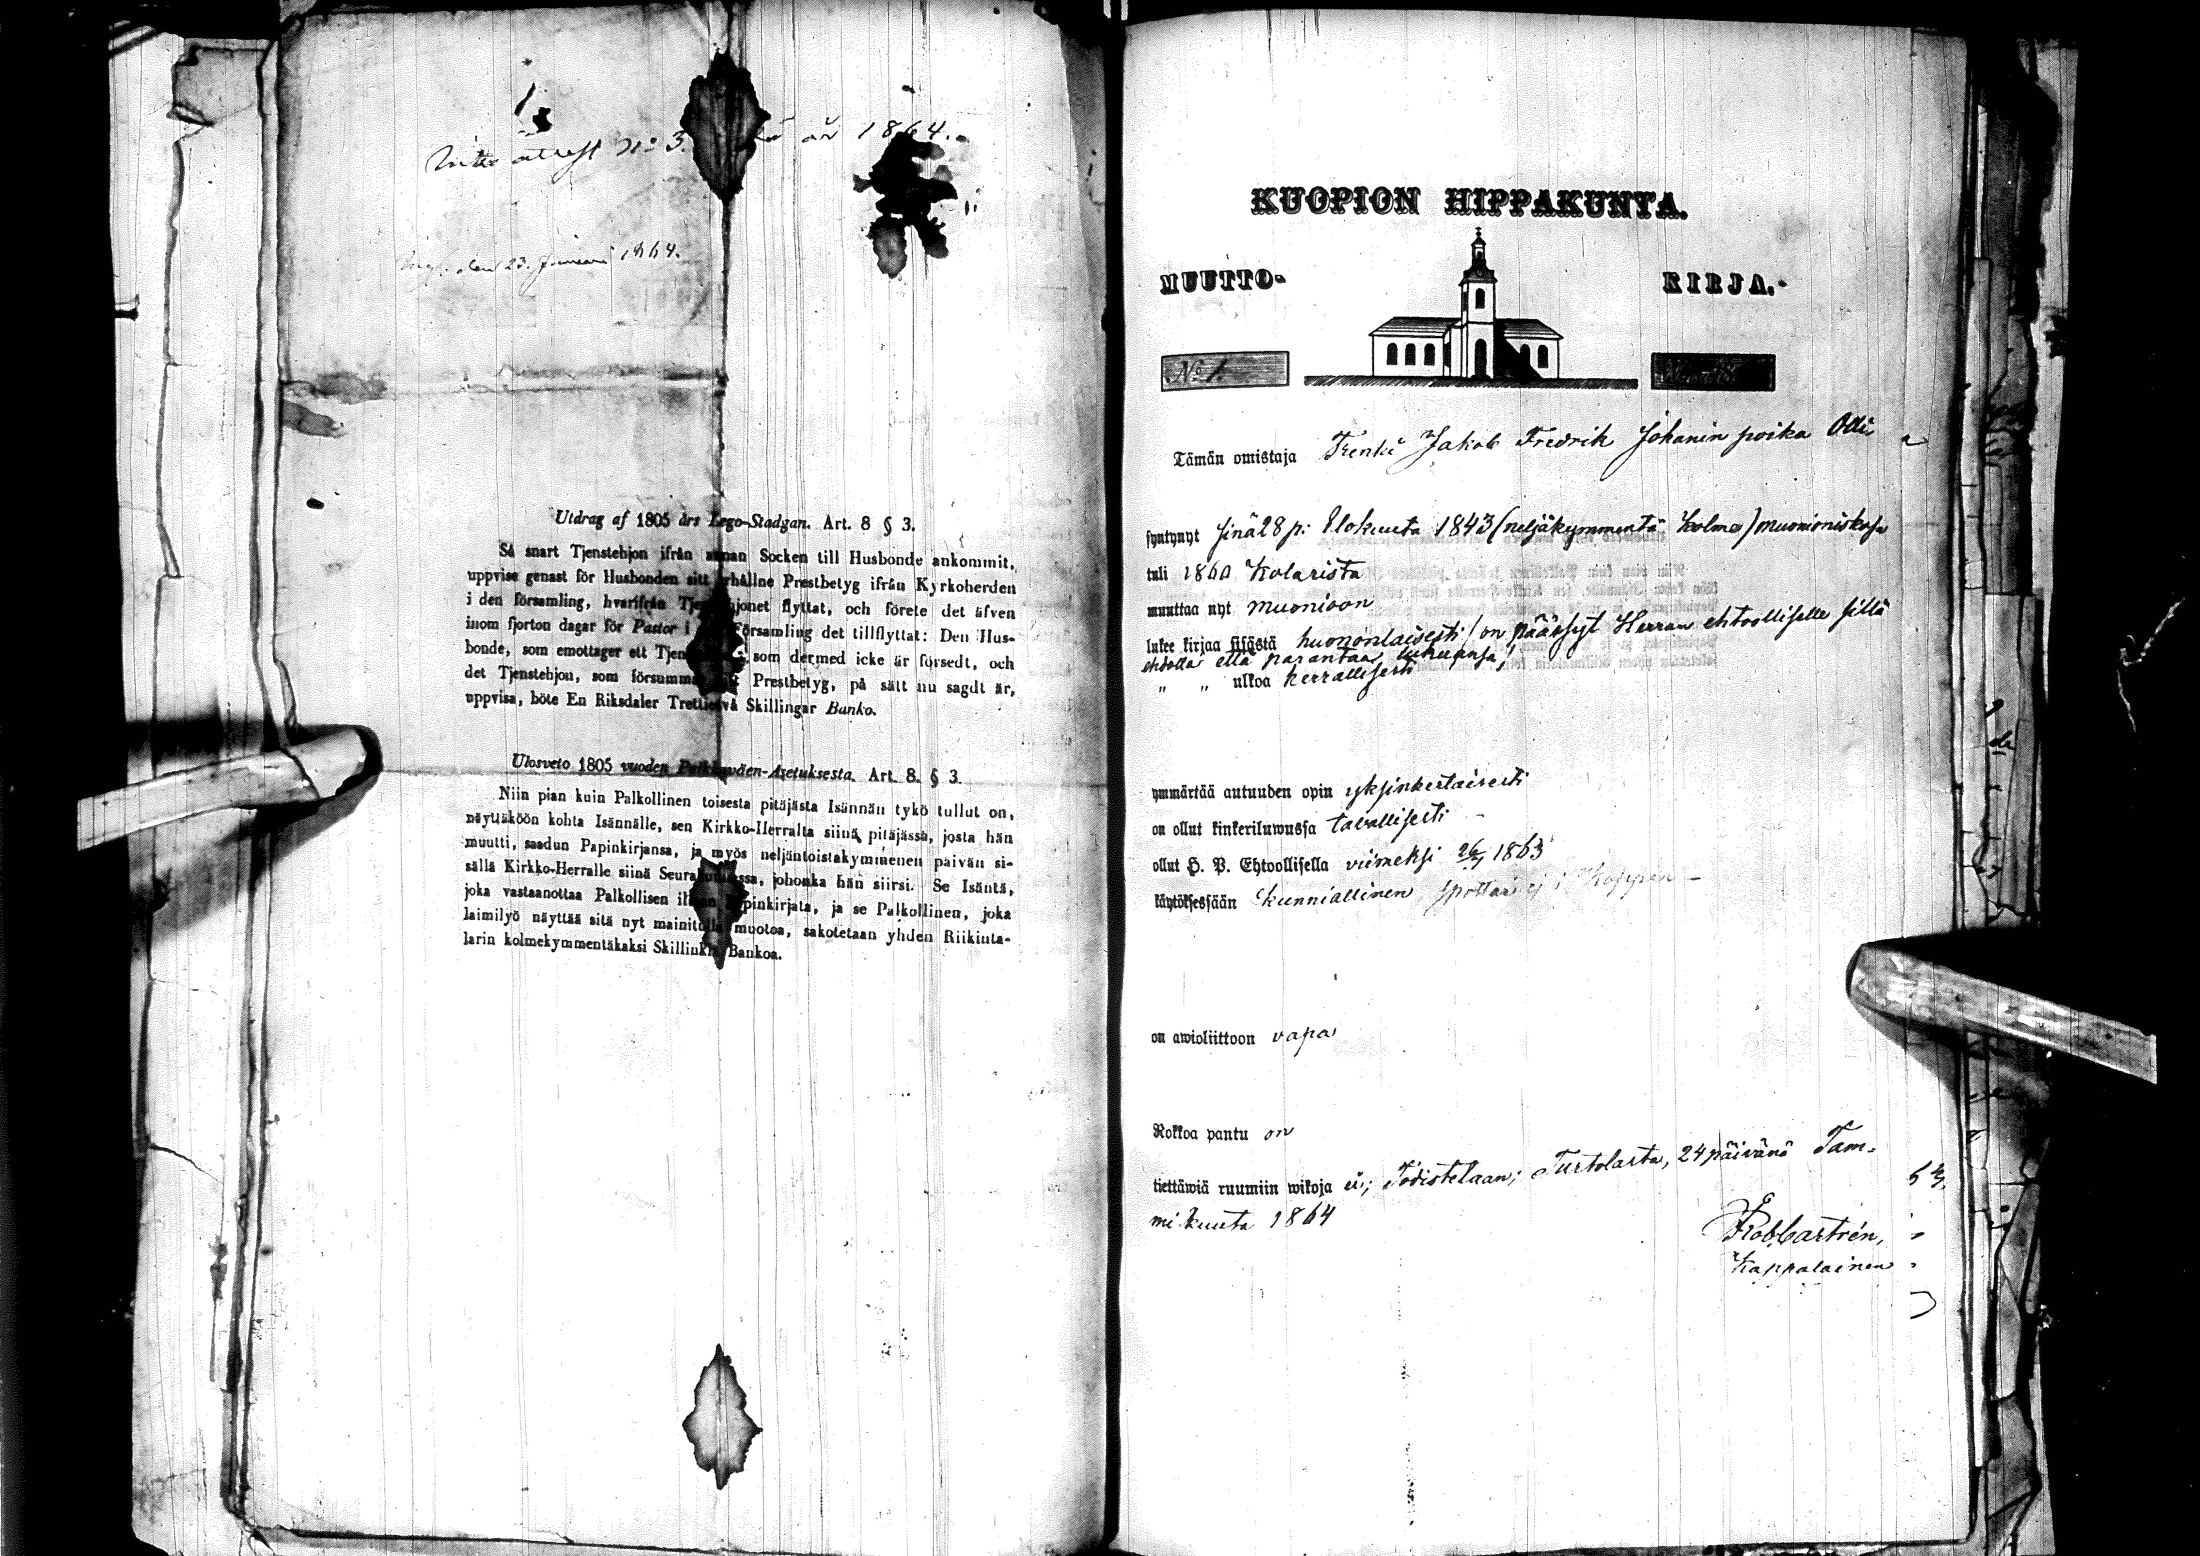 attest No 3. år 1864.
den 23. Januari 1864.
Utdrag af 1805 års Lego-Stadgan. Art. 8 § 3.
Så snart Tjenstehjon ifrån annan Socken till Husbonde ankommit,
uppvise genast för Husbonden sitt erhållne Prestbetyg ifrån Kyrkoherden
i den församling, hvarifrån Tjenstehjonet flyttat, och förete det äfven
inom fjorton dagar för Pastor i församling det tillflyttat: Den Hus-
bonde, som emottager ett som dermed icke är försedt, och
det Tjenstehjon, som försummar Prestbetyg, på sätt nu sagdt är,
uppvisa, böte En Riksdaler Trettiotvå Skillingar Banko.
Ulosveto 1805 vuoden Palkkaväen-Asetuksesta. Art. 8. § 3.
Niin pian kuin Palkollinen toisesta pitäjästa Isännän tykö tullut on,
näyttäköön kohta Isännälle, sen Kirkko-Herralta siinä pitäjässä, josta hän
muutti, saadun Papinkirjansa, ja myös neljäntoistakymmenen päivän si-
sällä Kirkko-Herralle siinä Seurakunnassa, johonka hän siirsi. Se Isäntä,
joka vastaanottaa Palkollisen ilman Papinkirjata, ja se Palkollinen, joka
laimilyö näyttää sitä nyt mainitulla muotoa, sakotetaan yhden Riikinta-
larin kolmekymmentäkaksi Skillinkiä Bankoa.
KUOPION HIPPAKUNTA.
MUUTTO- KIRJA.
No 1.
Tämän omistaja Renki Jakob Fredrik Johanin poika Olli
syntynyt sinä 28 p: Elokuuta 1843 (neljäkymmentä kolme) muonioniskasa
tuli 1860 Kolarista
muuttaa nyt muonioon
lukee kirjaa sisästä huononlaisesti / on päässyt Herran ehtoolliselle sillä
ehdolla että parantaa lukunsa /
" " ulkoa kerrallisesti
ymmärtää autuuden opin yksinkertaisesti
on ollut kinkeriluwussa tavallisesti
ollut H. P. Ehtoollisella viimeksi 26/7 1863
käytöksessään kunniallinen
on awioliittoon vapa
Rokkoa pantu on
tiettäwiä ruumiin wikoja ei; Todistetaan; Turtolasta, 24 päivänä Tam-
mikuuta 1864
Rob. Castrén,
Kappalainen